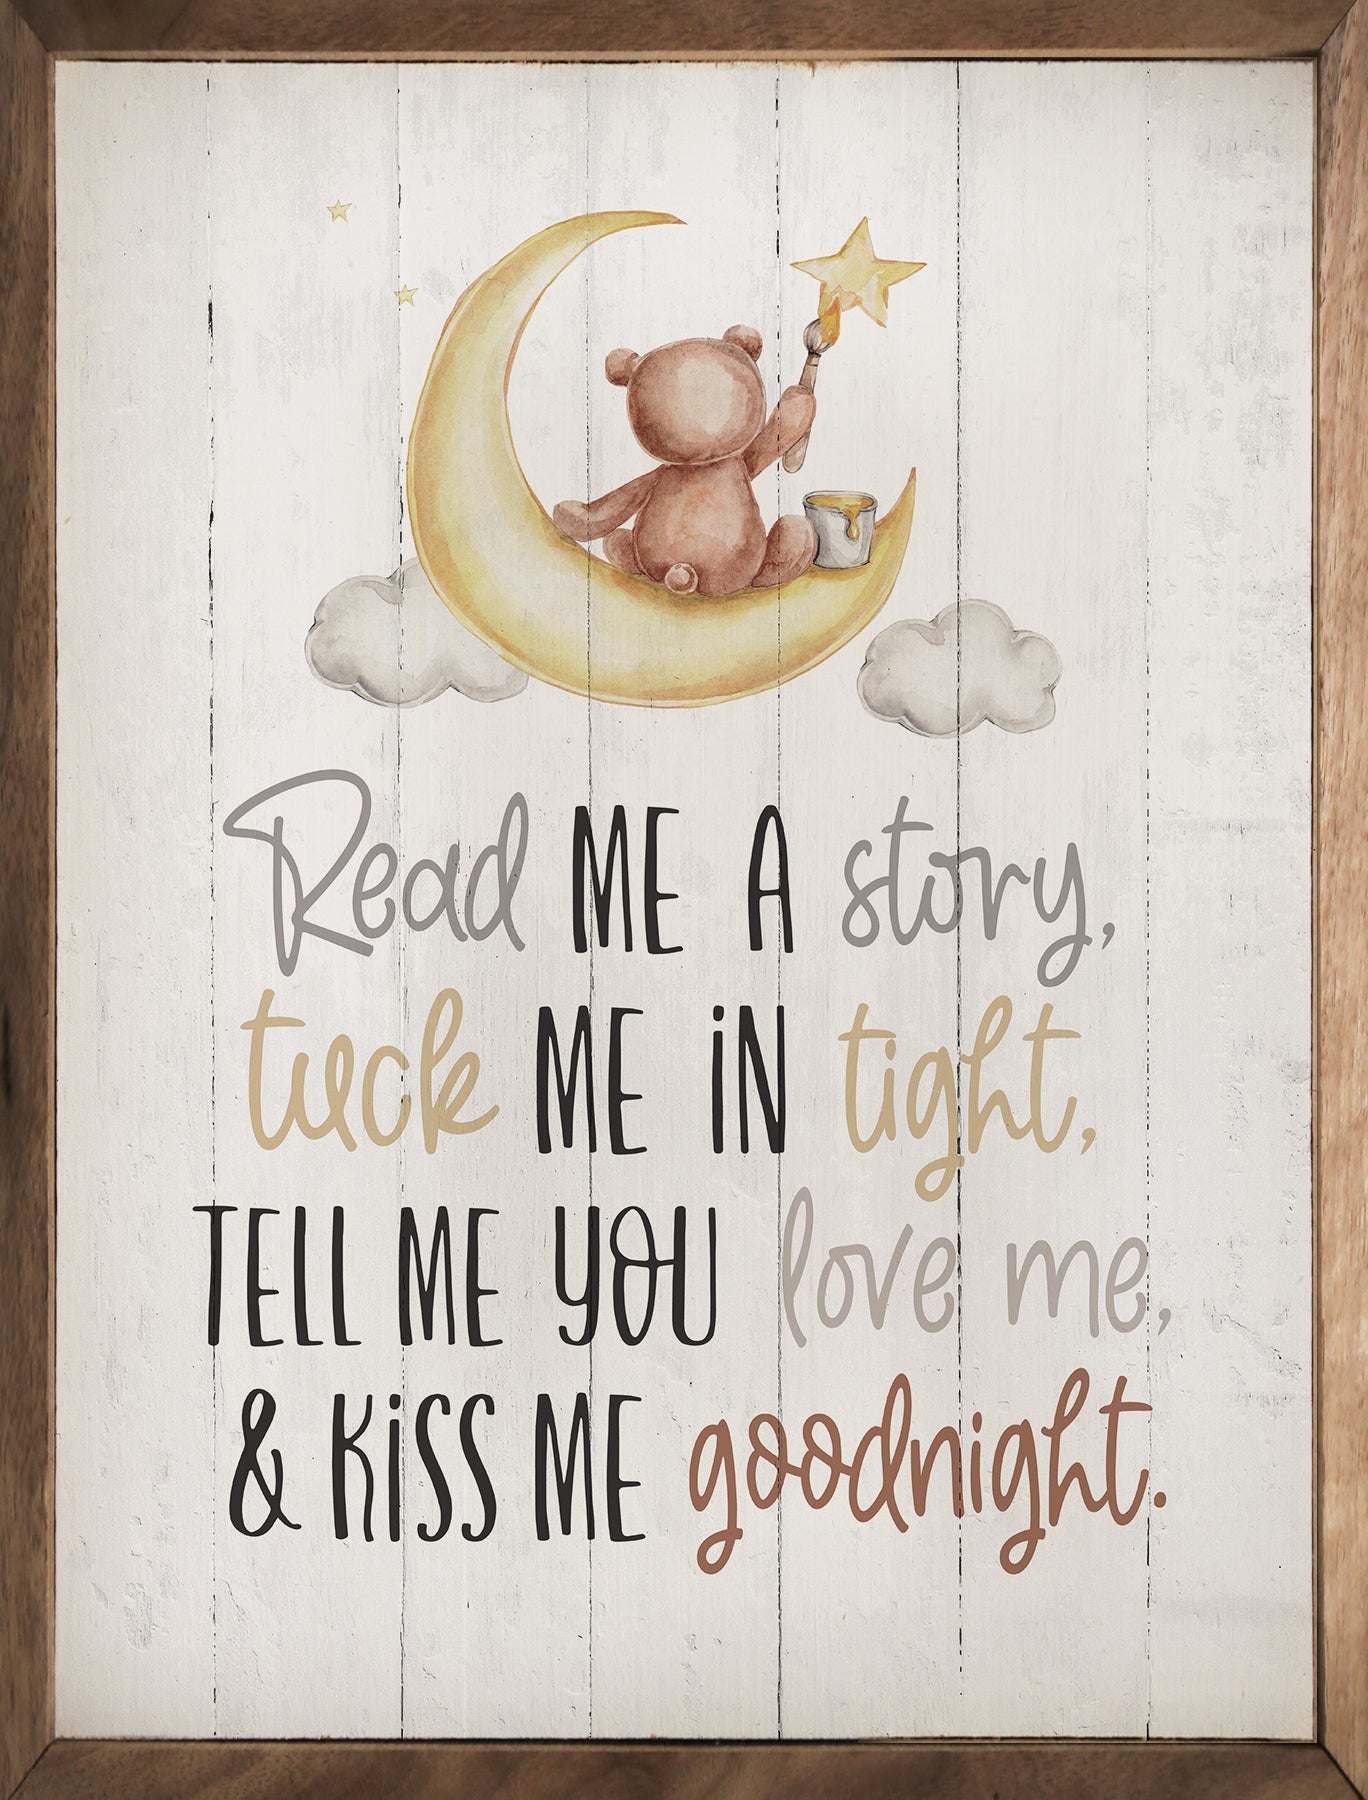 Read ME A story,
tuck ME iN tight,
TELL ME YOU love me,
& KiSS ME goodnight.